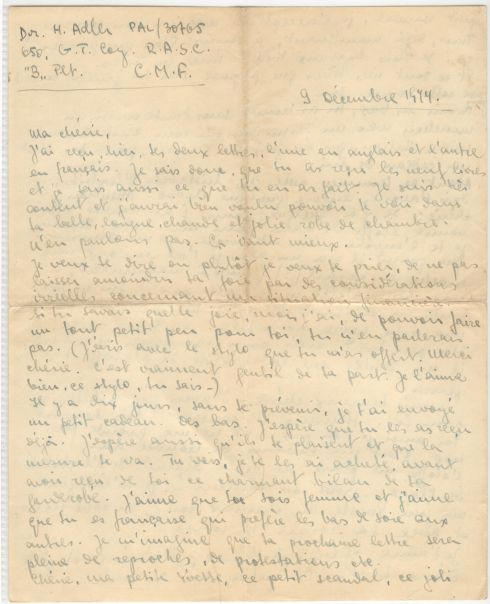 Dvr. H. Adler PAL/30765
650, G.T. Coy. R.A.S.C.
"B" Plt. C.M.F.
9 Décembre 1944.
Ma chérie,
J'ai reçu, hier, tes deux lettres, l'une en anglais et l'autre
en français. Je sais donc, que tu as reçu les neuf livres
et je sais aussi ce que tu en as fait. Je suis très
content et j'aurai bien voulu pouvoir te voir dans
ta belle, longue, chaude et jolie robe de chambre.
N'en parlons pas. Ça vaut mieux.
Je veux te dire ou plutôt je veux te prier, de ne pas
laisser amoindrir ta joie par des considérations
concernant ma situation financière.
Si tu savais quelle joie, moi, j'ai, de pouvoir faire
un tout petit peu pour toi, tu n'en parlerais
pas. (J'écris avec le stylo que tu m'as offert. Merci
chérie. C'est vraiment gentil de ta part. Je l'aime
bien, ce stylo, tu sais.)
Il y a dix jours, sans te prévenir, je t'ai envoyé
un petit cadeau. Des bas. J'espère que tu les as reçu
déjà. J'espère aussi qu'ils te plaisent et que la
mesure te va. Tu vois, je te les ai acheté, avant
avoir reçu de toi ce charmant bilan de ta
garderobe. J'aime que toi sois femme et j'aime
que tu es française qui préfère les bas de soie aux
autres. Je m'imagine que ta prochaine lettre sera
pleine de reproches, de protestations etc.
Chérie, ma petite Yvette, ce petit scandal, ce joli